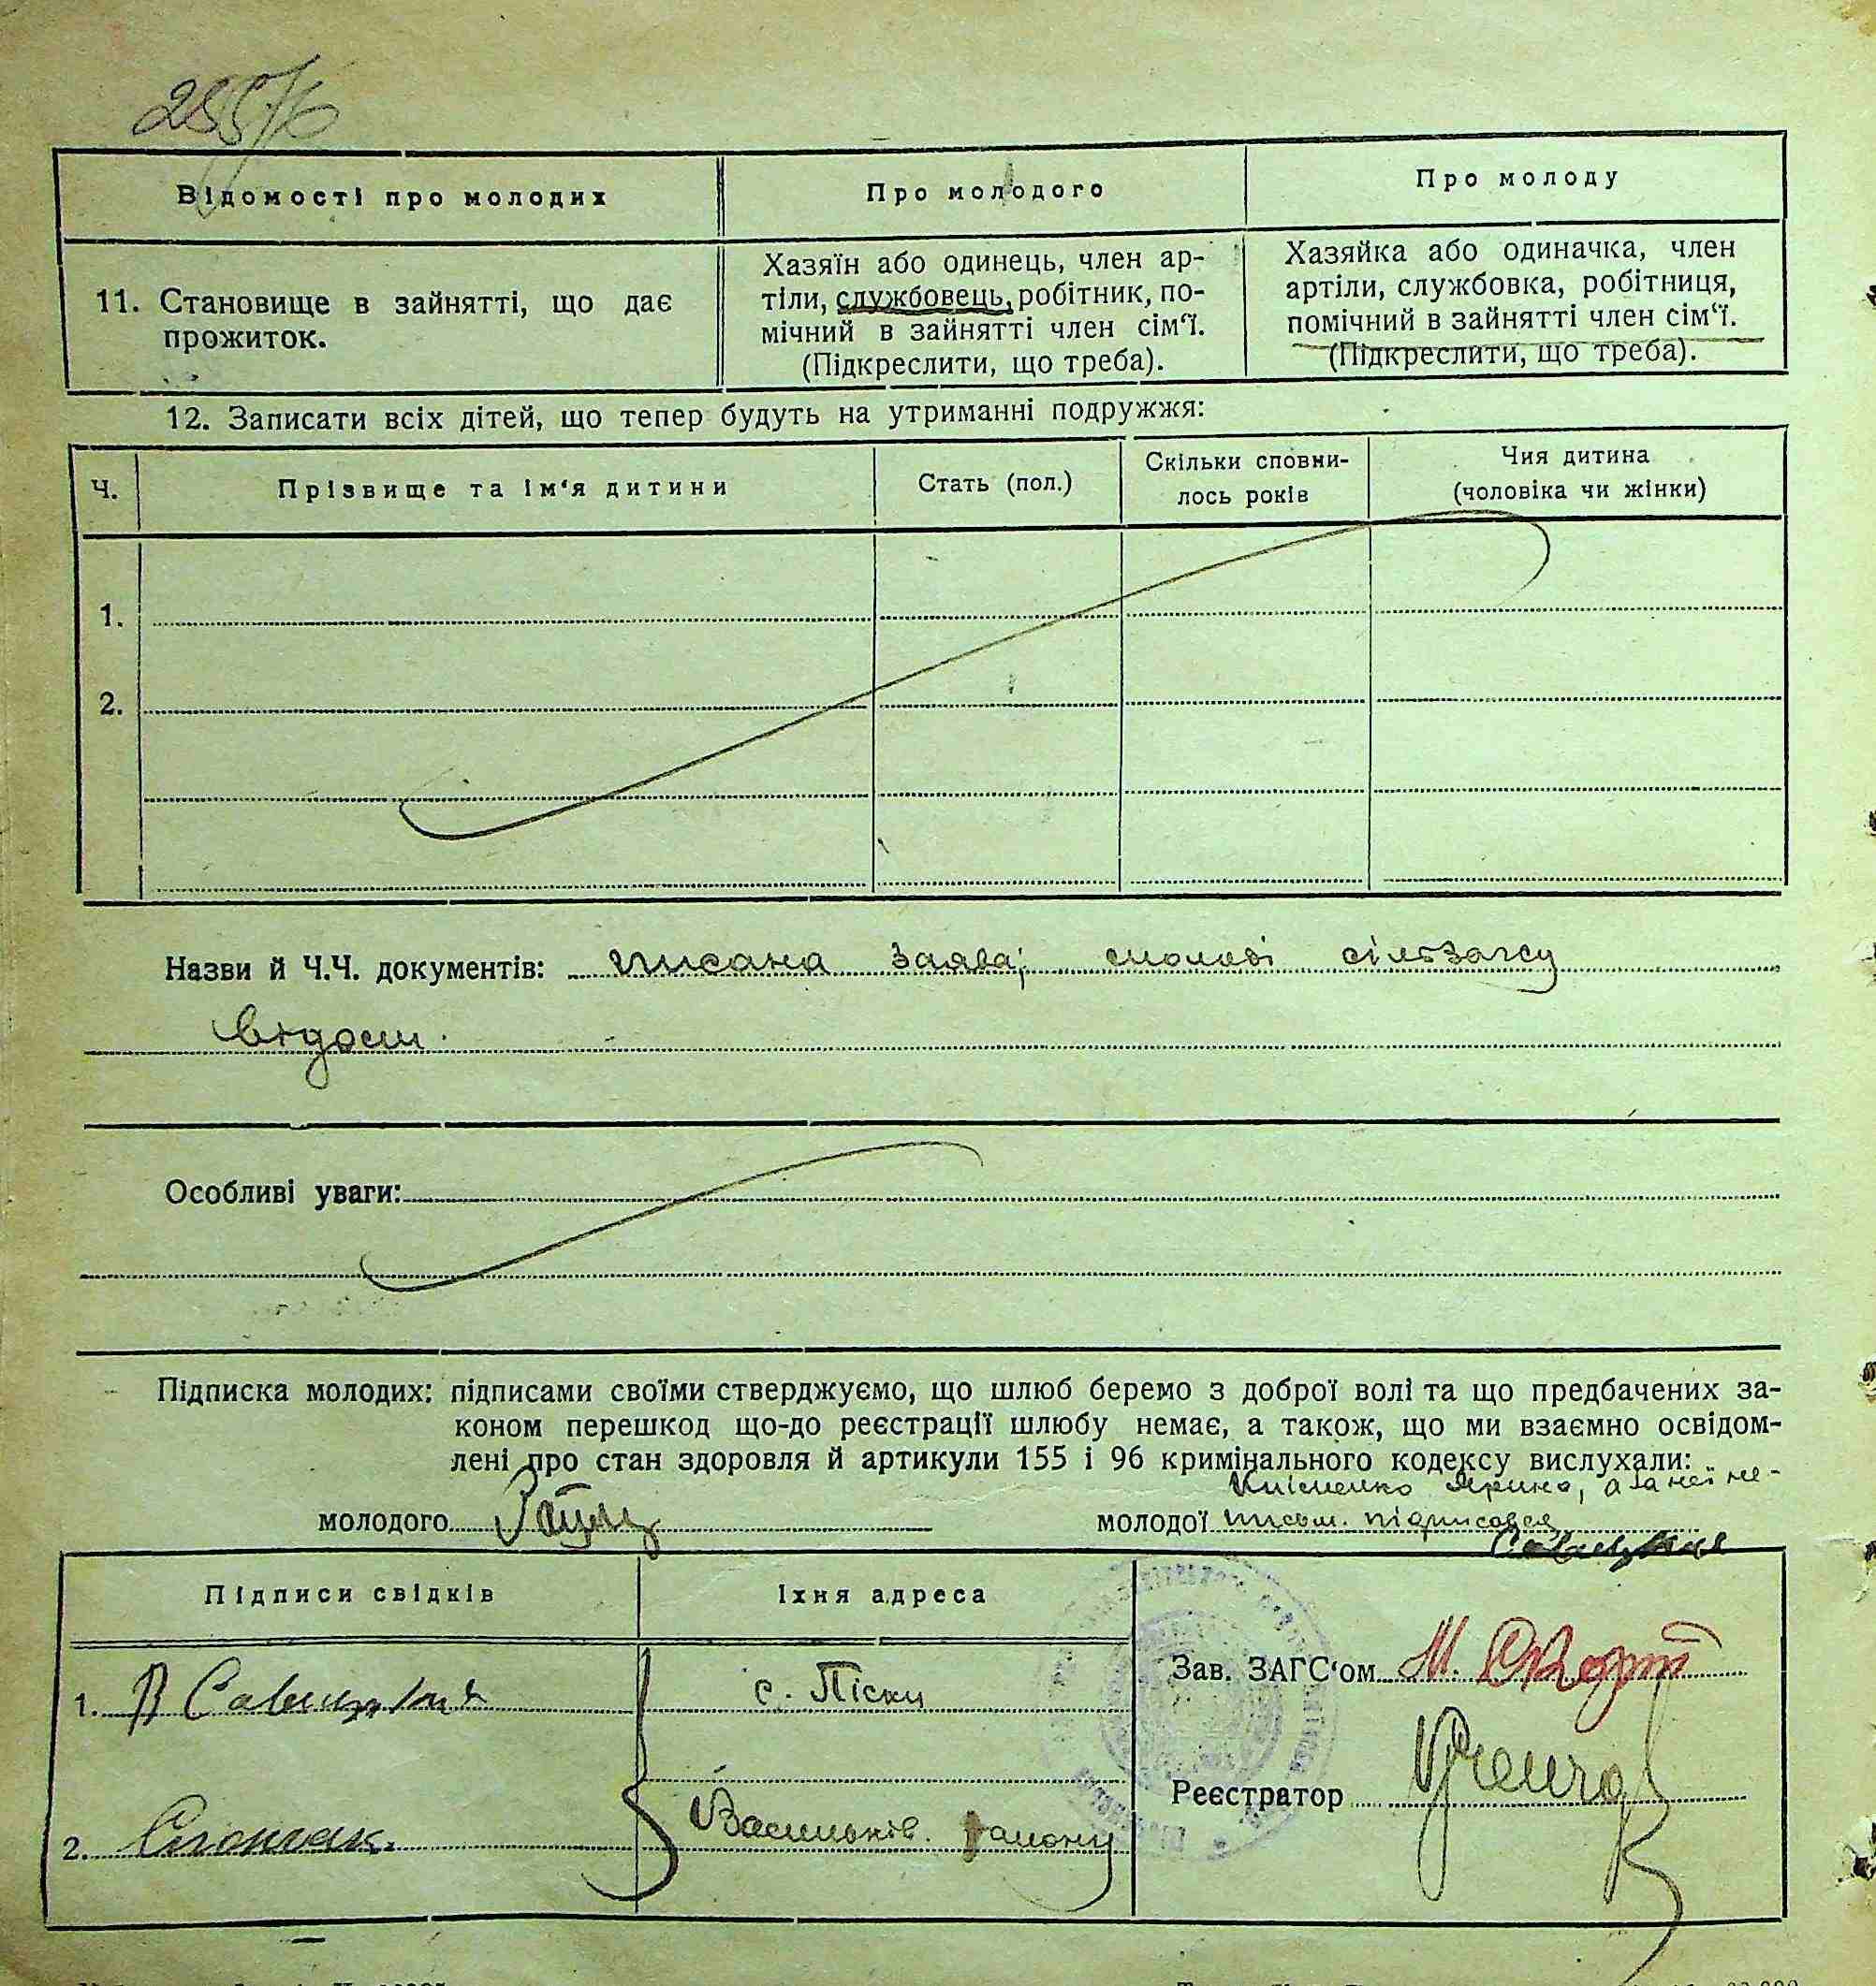 Відомості про молодих
Про молодого
Про молоду
11. Становище в зайнятті, що дає
прожиток.
Хазяїн або одинець, член ар-
тіли, службовець, робітник, по-
мічний в зайнятті член сім‘ї.
(Підкреслити, що треба).
Хазяйка або одиначка, член
артіли, службовка, робітниця,
помічний в зайнятті член сім‘ї.
(Підкреслити, що треба).
12. Записати всіх дітей, що тепер будуть на утриманні подружжя:
Ч.
Прізвище та ім‘я дитини
Стать (пол.)
Скільки сповни-
лось років
Чия дитина
(чоловіка чи жінки)
1.
2.
Назви й Ч.Ч. документів: писана заява; сільзагсу
Особливі уваги:
Підписка молодих: підписами своїми стверджуємо, що шлюб беремо з доброї волі та що предбачених за-
коном перешкод що-до реєстрації шлюбу немає, а також, що ми взаємно освідом-
лені про стан здоровля й артикули 155 і 96 кримінального кодексу вислухали:
Кліменко Ярина, а за неї не-
молодого
молодої письм. підписався
Підписи свідків
Їхня адреса
1.
с. Піски
Зав. ЗАГС‘ом М.
Реєстратор
2.
Васильків. району